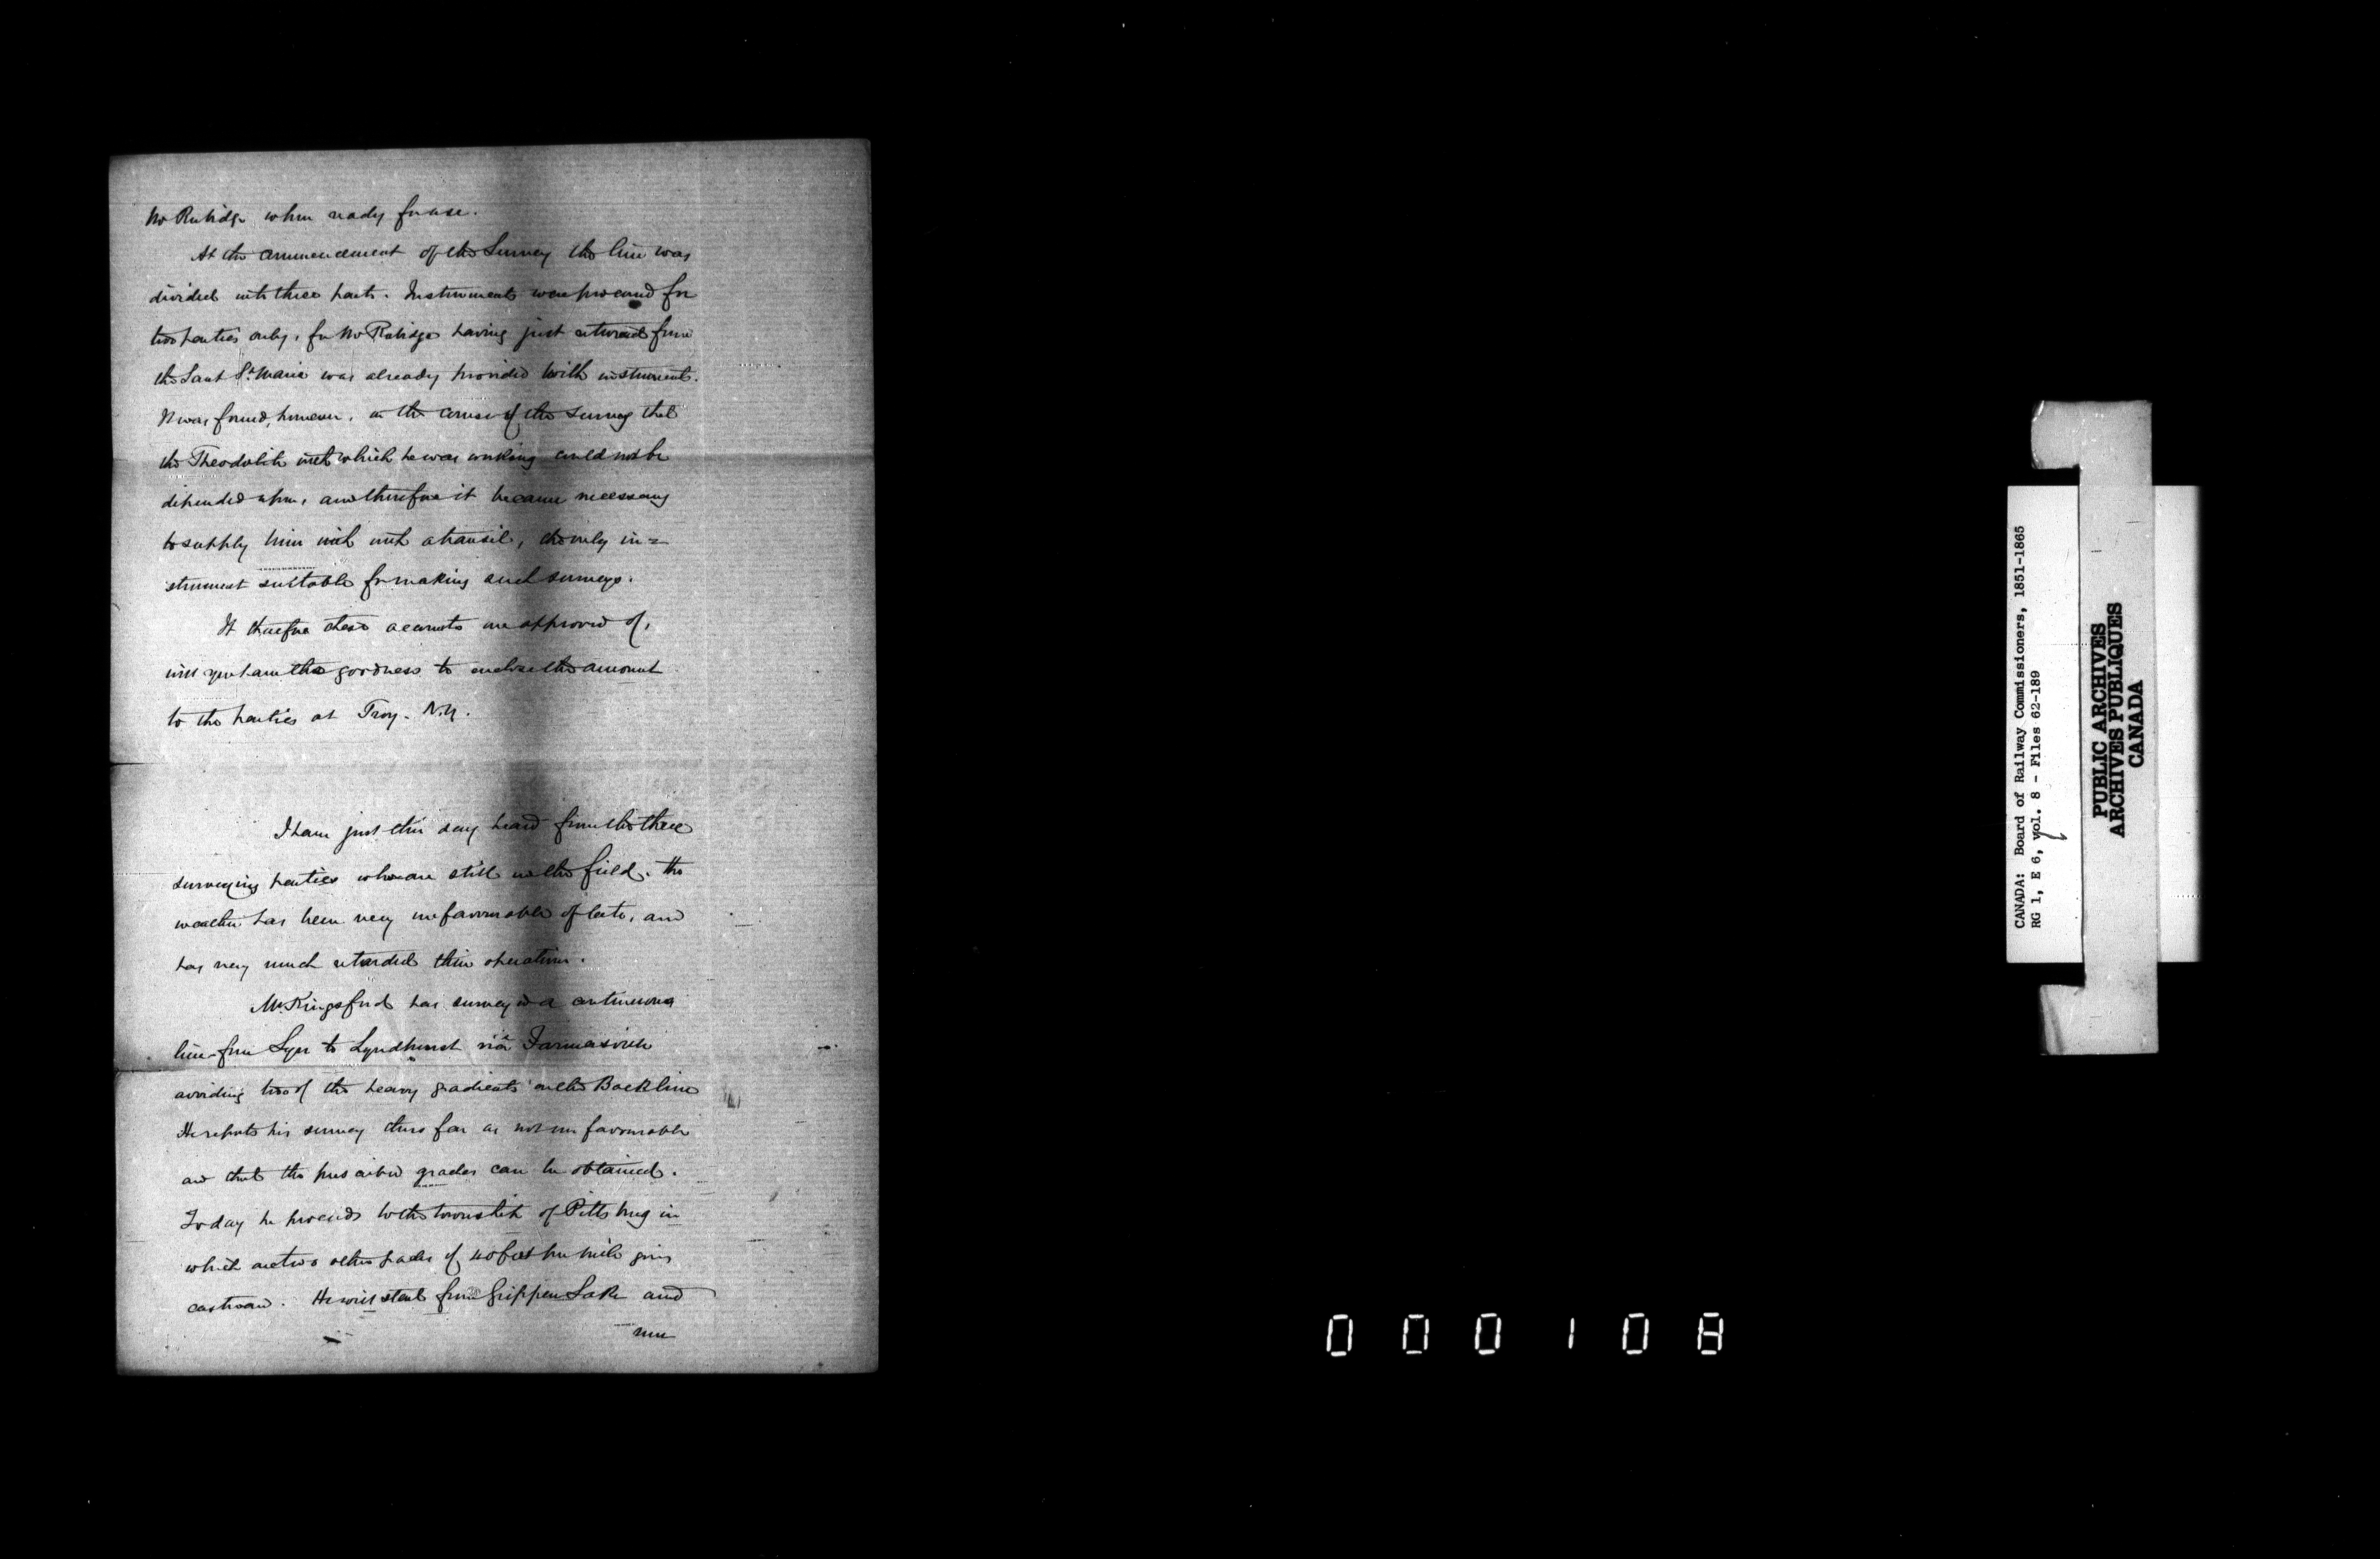 Mr Rubidge when ready for use.
At the commencement of the Survey the line was
divided into three parts. Instruments were procured for
two parties only, for Mr Rubidge having just returned from
the Saut St. Marie was already provided with instruments.
It was found, however, in the course of the survey that
the Theodolite with which he was working could not be
depended upon, and therefore it became necessary
to supply him with with a transit, the only in=
strument suitable for making such surveys.
If therefore these accounts are approved of,
will you have the goodness to enclose the amount
to the parties at Troy. N.Y.
I have just this day heard from the three
surveying parties who are still in the field. The
weather has been very unfavourable of late, and
has very much retarded their operations.
Mr Kingsford has surveyed a continuous
line from Lyn to Lyndhurst viâ Farmersville
avoiding two of the heavy gradients on the Back line
He reports his survey thus far as not unfavourable
and that the prescribed grades can be obtained.
Today he proceeds to the township of Pittsburg in
which are two other grades of 40 feet per mile going
eastward. He will start from Grippen Lake and
run
000108
CANADA: Board of Railway Commissioners, 1851-1865
RG 1, E 6, vol. 8 - Files 62-189
PUBLIC ARCHIVES
ARCHIVES PUBLIQUES
CANADA